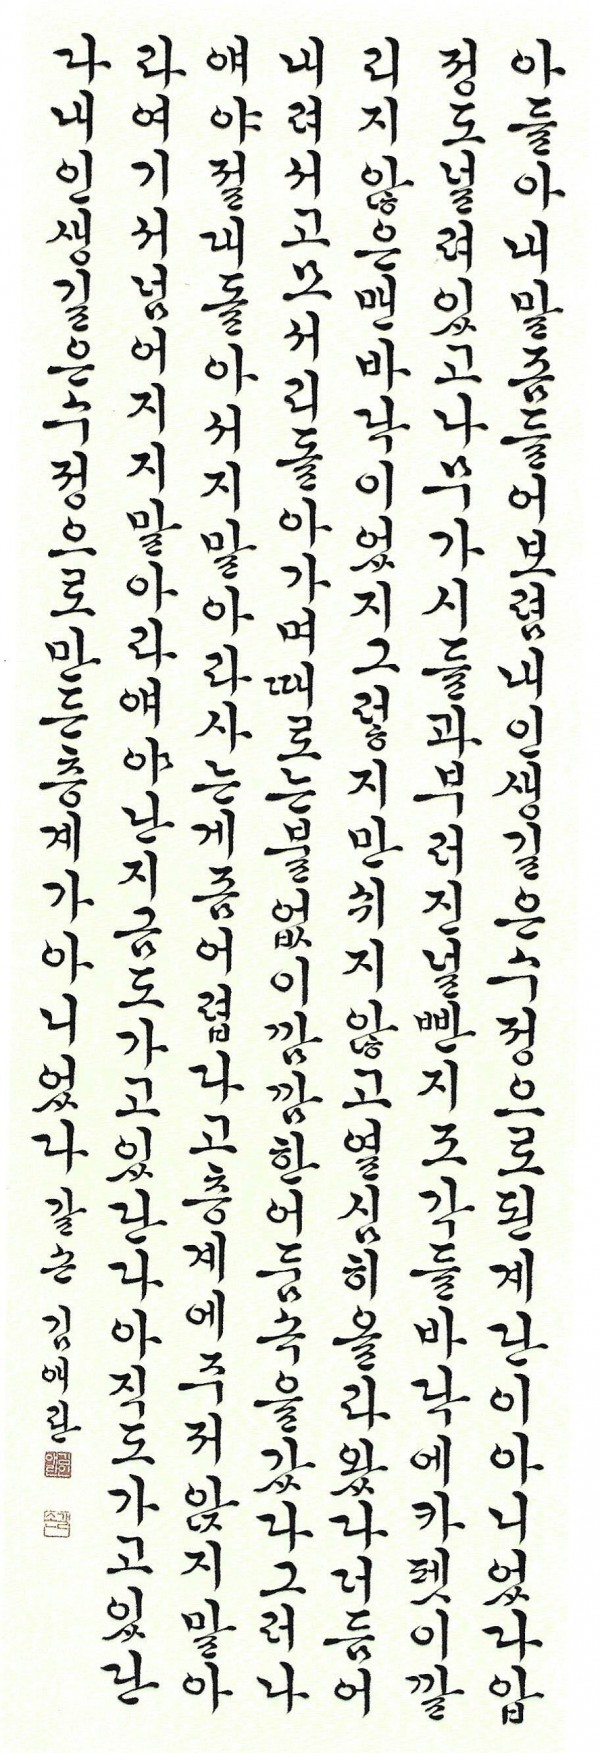 아들아내말좀들어보렴내인생길은수정으로된계단이아니었다압
정도널려있고나무가시들과부러진널빤지조각들바닥에카펫이깔
리지않은맨바닥이었지그렇지만쉬지않고열심히올라왔다더듬어
내려서고모서리돌아가며때로는불없이깜깜한어둠속을갔다그러나
얘야절대돌아서지말아라사는게좀어렵다고층계에주저앉지말아
라여기서넘어지지말아라얘야난지금도가고있단다아직도가고있단
다내인생길은수정으로만든층계가아니었다 갈손 김애란